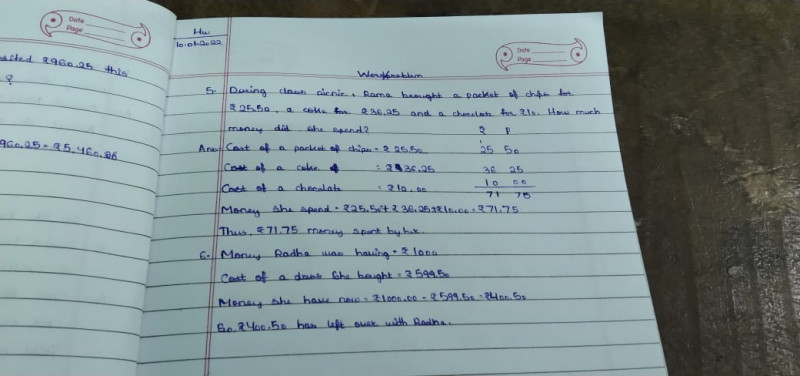 Date
Page
acted ₹960.25 this
?
960.25 = ₹5,460.25
Hw
10.01.2022
Date
Page
Word problem
5. During class picnic, Rama brought a packet of chips for
₹25.50, a coke for ₹36.25 and a chocolate for ₹10. How much
money did she spend?
₹ P
Ans: Cost of a packet of chips = ₹25.50
1
25 50
Cost of a coke = ₹36.25
36 25
Cost of a chocolate = ₹10.00
10 00
71 75
Money she spend = ₹25.50+₹36.25+₹10.00 = ₹71.75
Thus, ₹71.75 money spent by her.
6. Money Radha was having = ₹1000
Cost of a dress she bought = ₹599.50
Money she have now = ₹1000.00 - ₹599.50 = ₹400.50
So, ₹400.50 has left over with Radha.